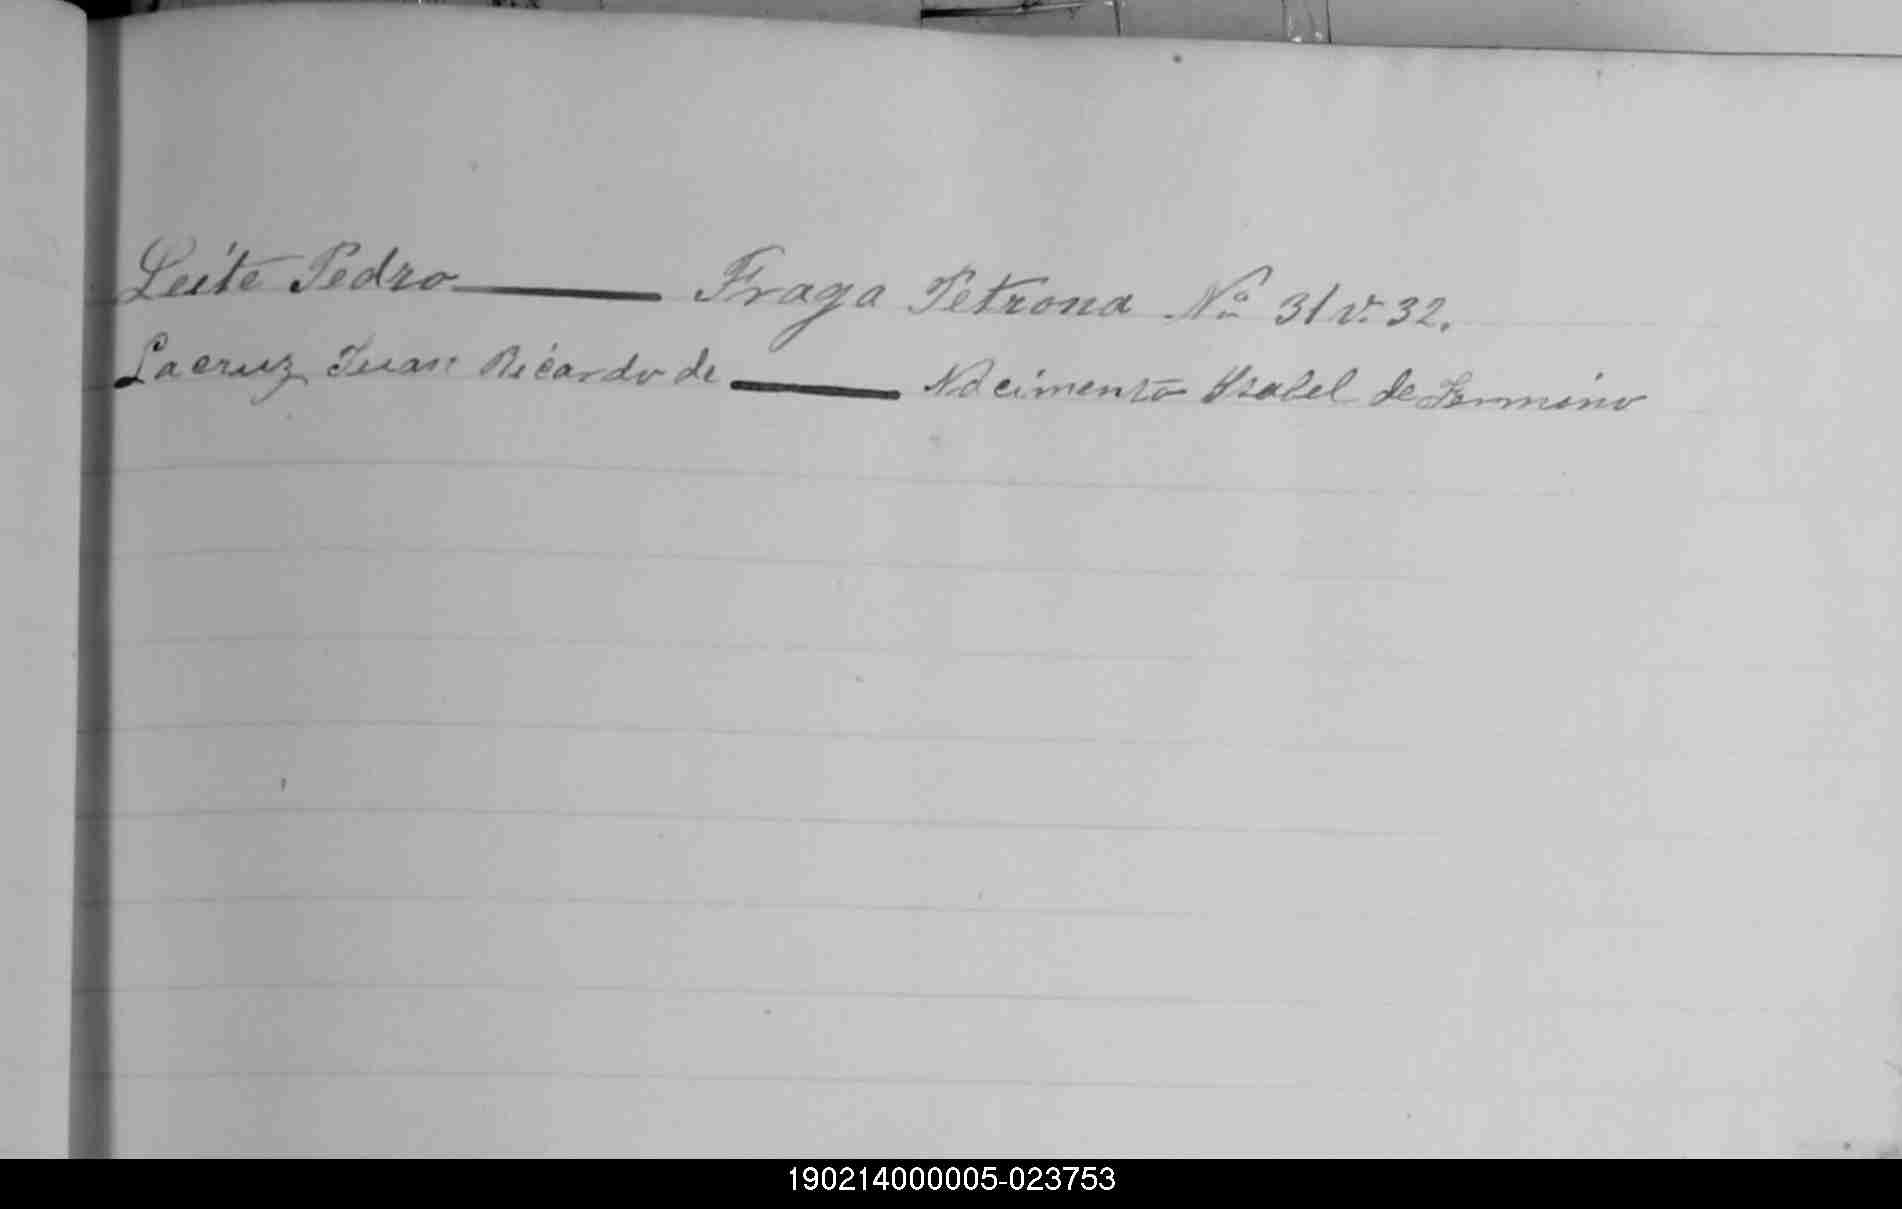 Leite Pedro — Fraga Petrona Nº 31 v. 32.
Lacruz Juan Ricardo de — Nacimento Ysabel de Fermino
190214000005-023753